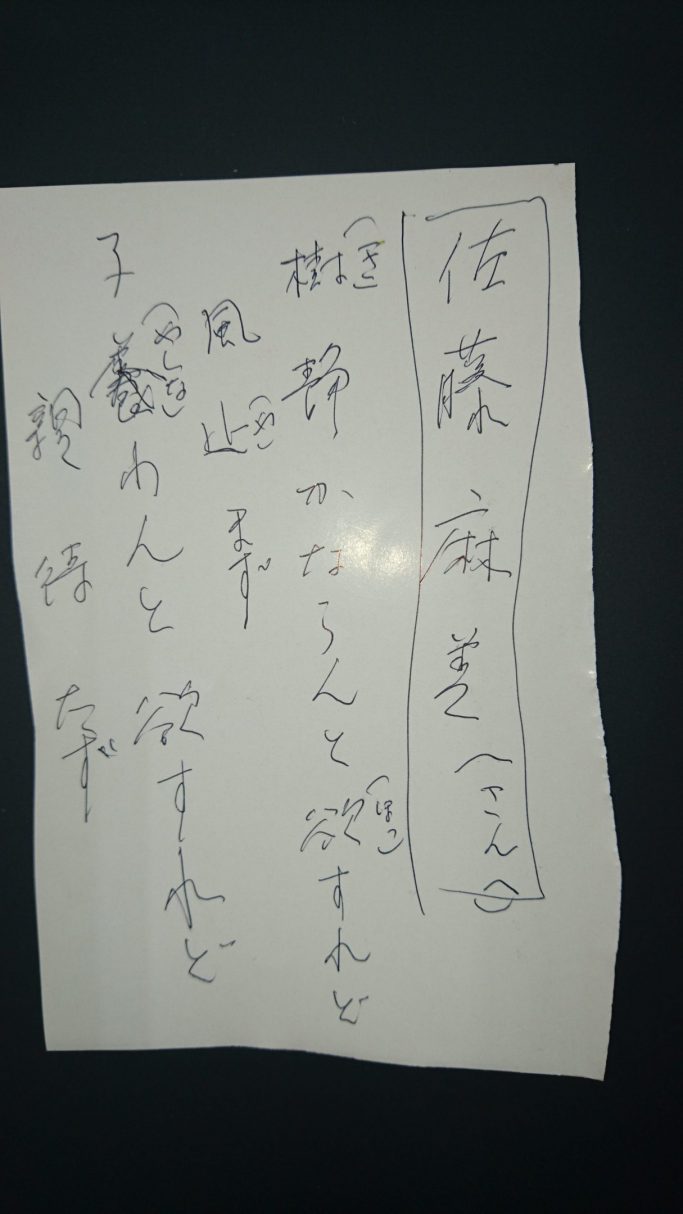 佐藤麻美（さんへ）
樹（き）は静かならんと欲（ほっ）すれど
風止（や）まず
子養（やしな）わんと欲すれど
親待たず